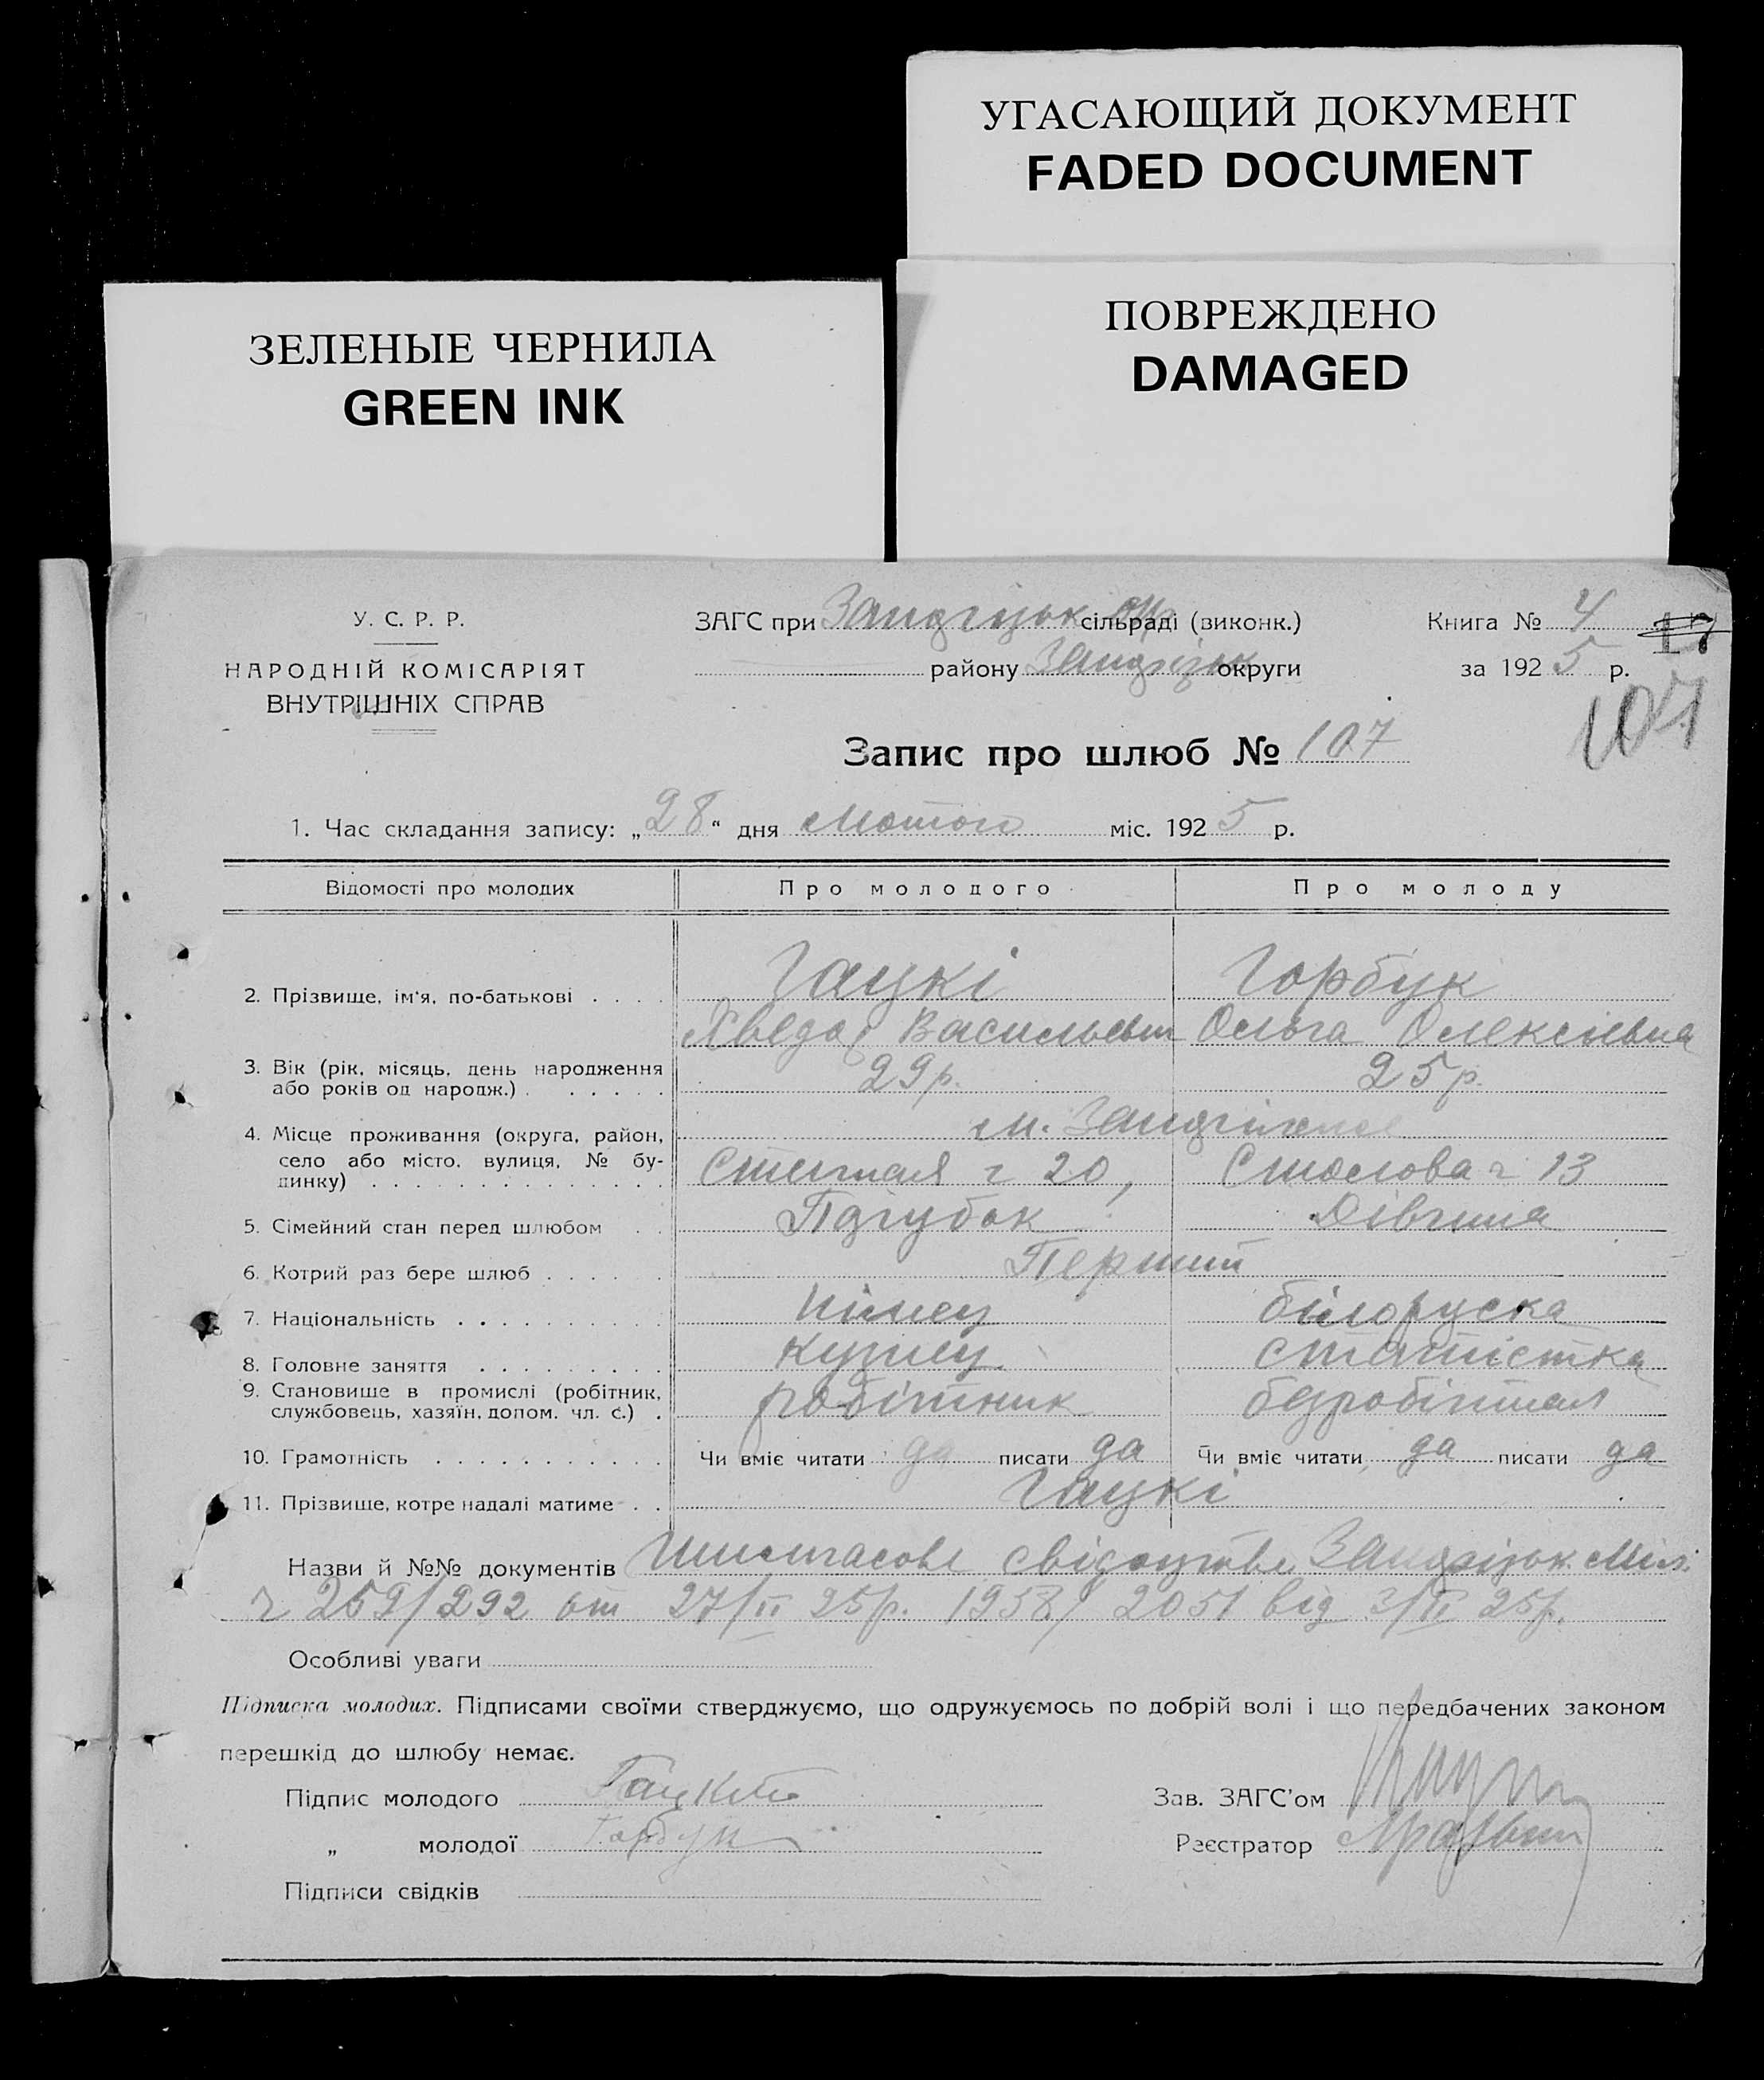 УГАСАЮЩИЙ ДОКУМЕНТ
FADED DOCUMENT
ПОВРЕЖДЕНО
DAMAGED
ЗЕЛЕНЫЕ ЧЕРНИЛА
GREEN INK
У. С. Р. Р.
НАРОДНІЙ КОМІСАРІЯТ
ВНУТРІШНІХ СПРАВ
ЗАГС при сільраді (виконк.)
району округи
Книга № 4
17
за 1925 р.
107
Запис про шлюб № 107
1. Час складання запису: „28“ дня Лютого міс. 1925 р.
Відомості про молодих Про молодого Про молоду
2. Прізвище, ім'я, по-батькові Гацкі Горбук
Хведор Васильевич Ольга Олексіевна
3. Вік (рік, місяць, день народження або років од народж.) 29р. 25р.
4. Місце проживання (округа, район, село або місто, вулиця, № будинку) м.
ч 20, ч 13
5. Сімейний стан перед шлюбом Парубок Дівчина
6. Котрий раз бере шлюб Перший
7. Національність німец білоруска
8. Головне заняття статистка
9. Становище в промислі (робітник, службовець, хазяїн, допом. чл. с.) робітник безробітная
10. Грамотність Чи вміє читати да писати да Чи вміє читати да писати да
11. Прізвище, котре надалі матиме Гацкі
Назви й №№ документів свідоцтва
ч 259/292 от 27/II 25р. 1958/2051 від 3/II 25р.
Особливі уваги
Підписка молодих. Підписами своїми стверджуємо, що одружуємось по добрій волі і що передбачених законом
перешкід до шлюбу немає.
Підпис молодого
„ молодої Горбук
Зав. ЗАГС'ом
Реєстратор
Підписи свідків